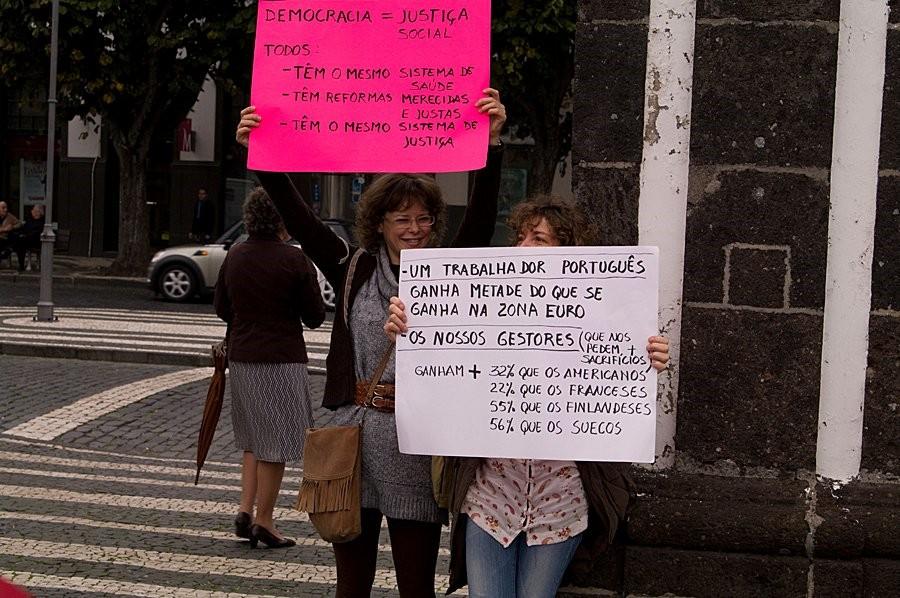 DEMOCRACIA = JUSTIÇA
SOCIAL
TODOS:
- TÊM O MESMO SISTEMA DE
SAÚDE
- TÊM REFORMAS MERECIDAS
E JUSTAS
- TÊM O MESMO SISTEMA DE
JUSTIÇA
- UM TRABALHADOR PORTUGUÊS
GANHA METADE DO QUE SE
GANHA NA ZONA EURO
- OS NOSSOS GESTORES (QUE NOS
PEDEM +
SACRIFÍCIOS)
GANHAM + 32% QUE OS AMERICANOS
22% QUE OS FRANCESES
55% QUE OS FINLANDESES
56% QUE OS SUECOS